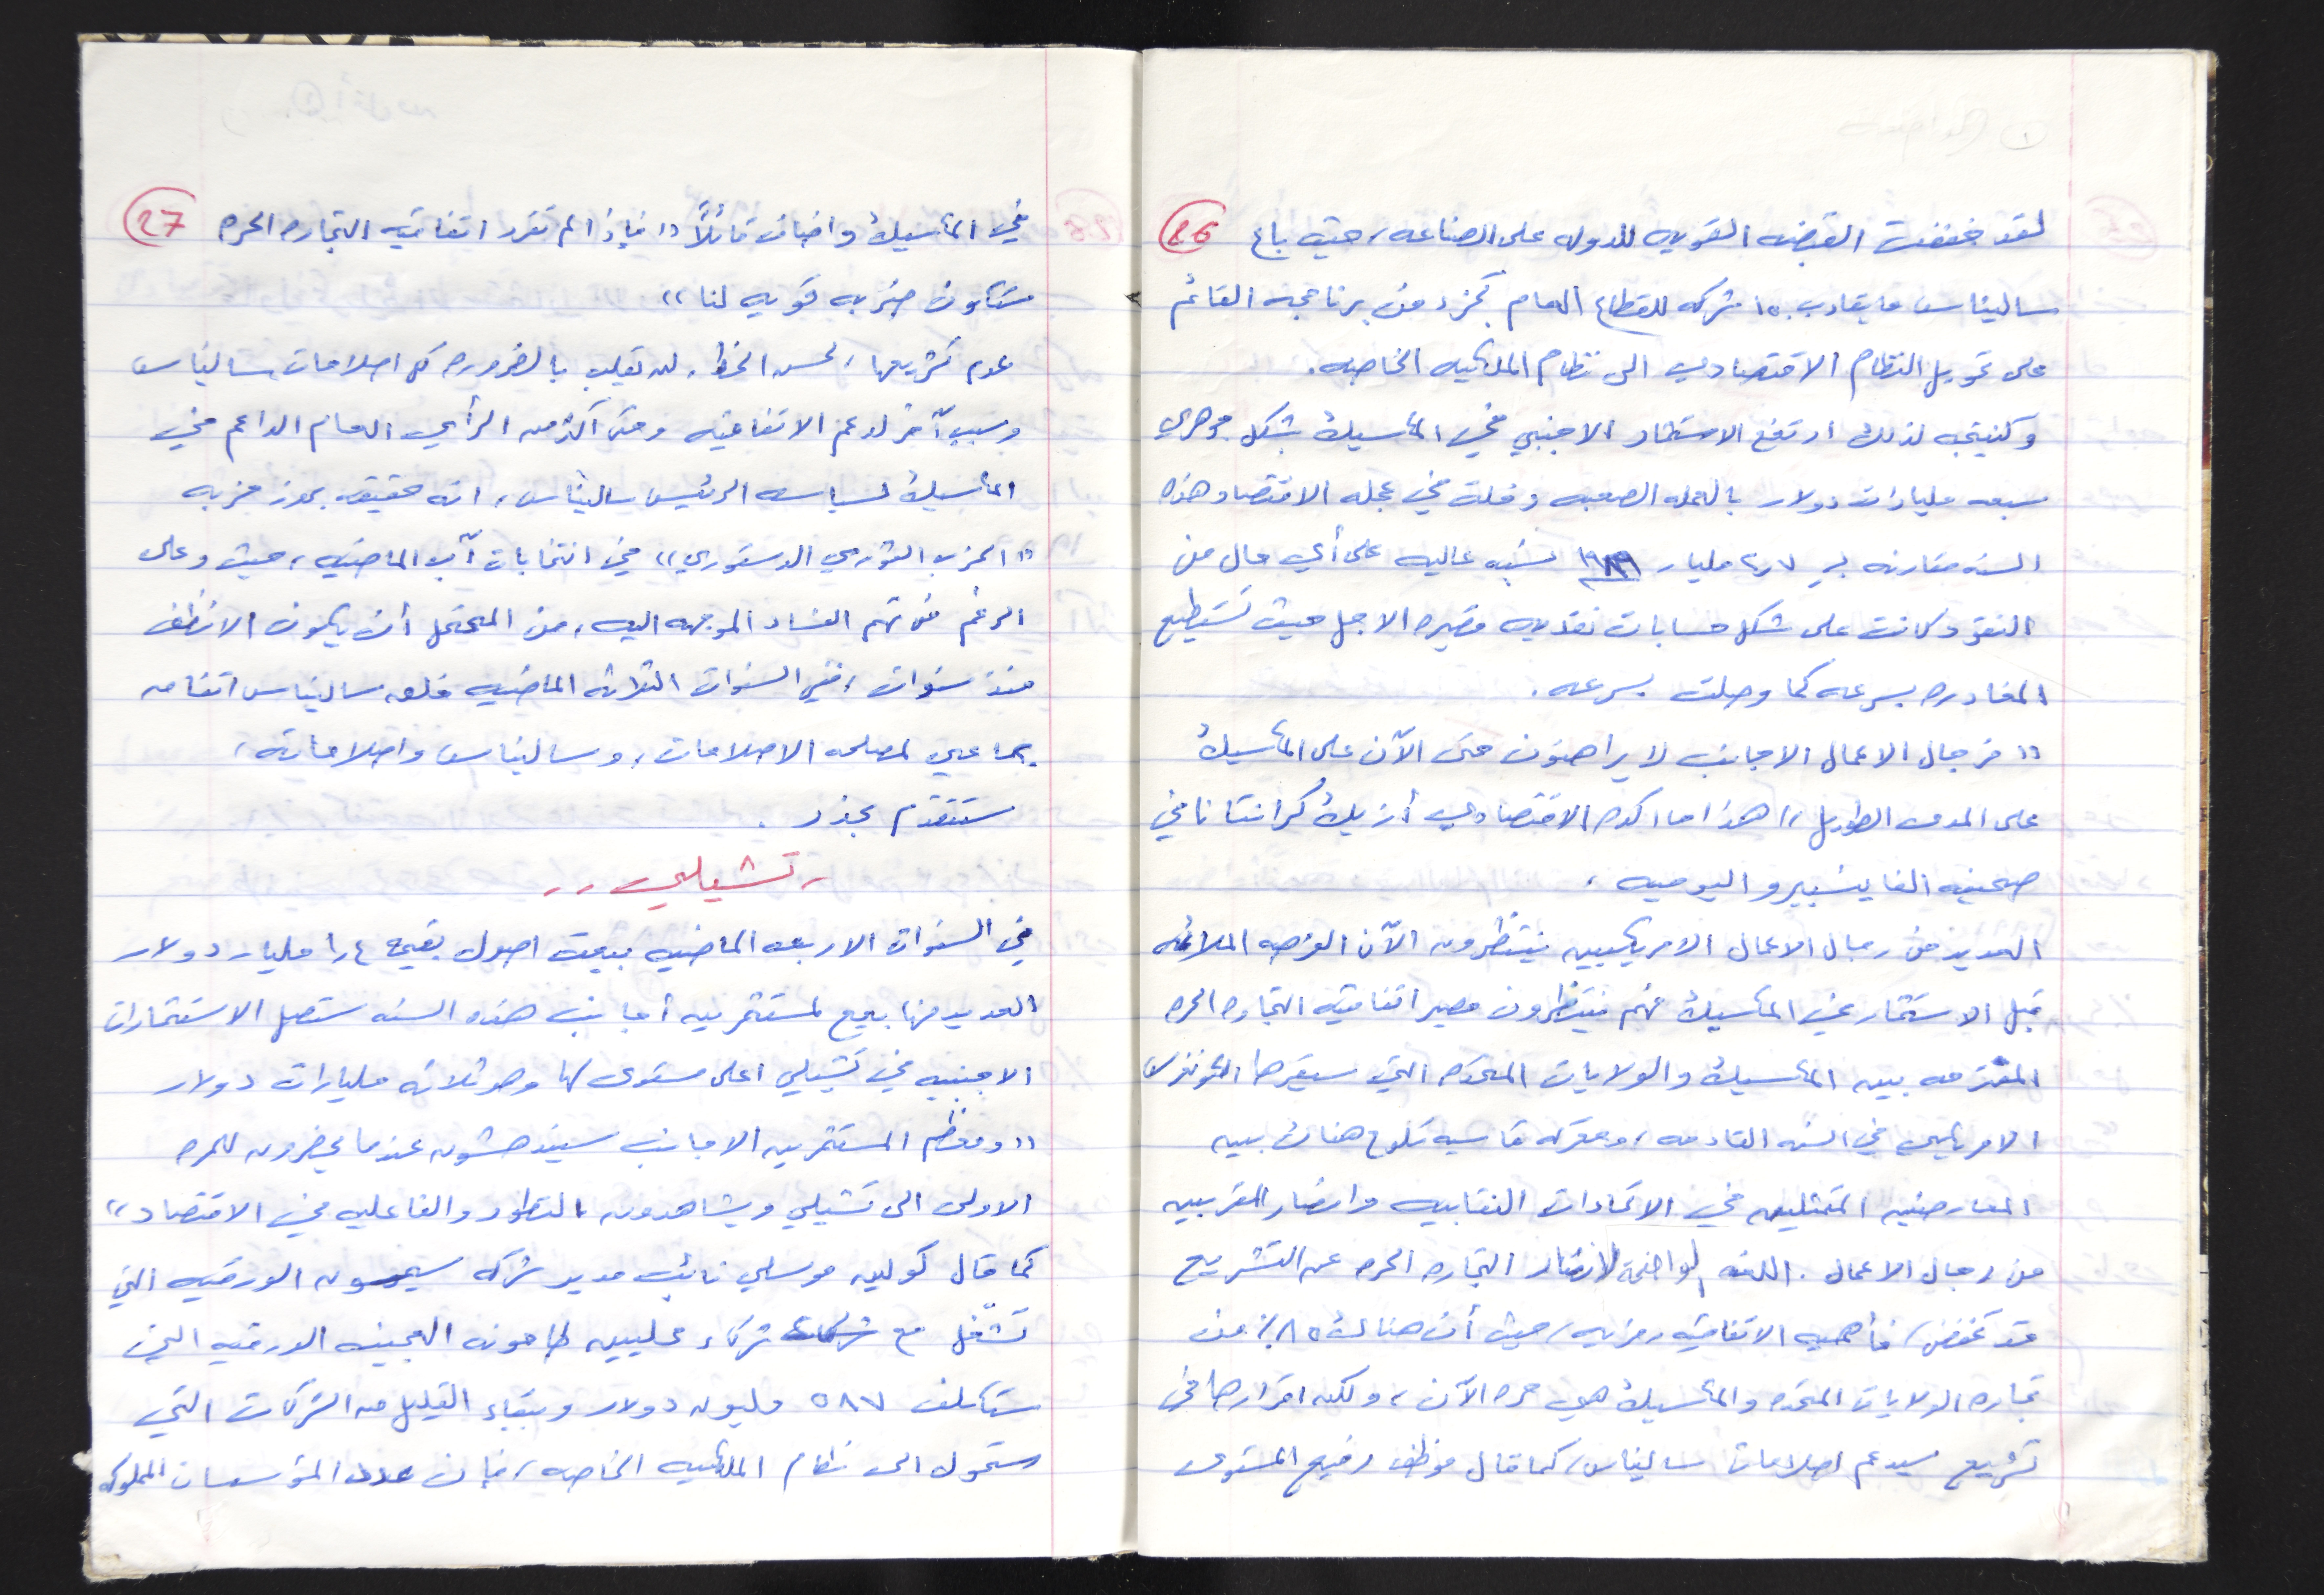 26
لقد خففت القبضه القويه للدوله على الصناعه، حيث باع
ساليناس ما يقارب ١٥٠ شركه للقطاع العام كجزء من برنامجه القائم
على تحويل النظام الاقتصادي الى نظام الملكيه الخاصه.
وكنتيجه لذلك ارتفع الاستثمار الاجنبي في المكسيك بشكل جوهري
سبعه مليارات دولار بالعمله الصعبه دخلت في عجله الاقتصاد هذه
السنه مقارنه بـ ٢,٧ مليار ١٩٨٩ نسبه عاليه على أي حال من
النقود كانت على شكل حسابات نقديه قصيره الاجل حيث تستطيع
المغادره بسرعه كما وصلت بسرعه.
"فرجال الاعمال الاجانب لا يراهنون حتى الآن على المكسيك
على المدى الطويل" هذا ما اكده الاقتصادي أزيك كرانتانا في
صحيفه الفاينسيرو اليوميه،
العديد من رجال الاعمال الامريكيين ينتظرون الآن الفرصه الملائمه
قبل الاستثمار في المكسيك فهم ينتظرون مصير اتفاقيه التجاره الحره
المقترحه بين المكسيك والولايات المتحده التي سيقرها الكونغرس
الامريكي في السنه القادمه، ومعركه قاسيه تلوح هناك بين
المعارضين المتمثلين في الاتحادات النقابيه وانصار المقربين
من رجال الاعمال. اللغه الواضحة لانصار التجاره الحره عن التشريع
قد تخفض، فأهميه الاتفاقيه رمزيه، حيث أن هنالك ٨٥٪ من
تجاره الولايات المتحده والمكسيك هي حره الآن، ولكن اقرارها في
تشريع سيدعم اصلاحات ساليناس، كما قال موظف رفيع المستوى
27
في المكسيك واضاف قائلاً "فإذا لم تقر اتفاقيه التجاره الحره
ستكون ضربه قويه لنا"
عدم تشريعها، لحسن الحظ، لن يقلب بالضروره كل اصلاحات ساليناس
وسبب آخر لدعم الاتفاقيه وحتى أكثر من الرأي العام الداعم في
المكسيك لسياسه الرئيس ساليناس، انه حقيقه بفوز حزبه
"الحزب الثوري الدستوري" في انتخابات آب الماضيه، حيث وعلى
الرغم من تهم الفساد الموجهه اليه، من المحتمل أن يكون الانظف
منذ سنوات، ففي السنوات الثلاثه الماضيه خلق ساليناس اتفاق
جماعي لمصلحه الاصلاحات، وساليناس واصلاحاته،
ستتقدم بحذر.
تشيلي
في السنوات الاربعه الماضيه بيعت اصول بقيمة ١,٤ مليار دولار
العديد منها بيع لمستثمرين أجانب هذه السنه ستصل الاستثمارات
الاجنبيه في تشيلي اعلى مستوى لها وهو ثلاثه مليارات دولار
"ومعظم المستثمرين الاجانب سيندهشون عندما يحضرون للمره
الاولى الى تشيلي ويشاهدون التطور والفاعليه في الاقتصاد"
كما قال كولين موسلي نائب مدير شركه سيمسون الورقيه التي
تشغل مع شركاء محليين طاحونه العجينه الورقيه التي
ستكلف ٥٨٧ مليون دولار وببقاء القليل من الشركات التي
ستحول الى نظام الملكيه الخاصه، فإن عدد المؤسسات المملوكه